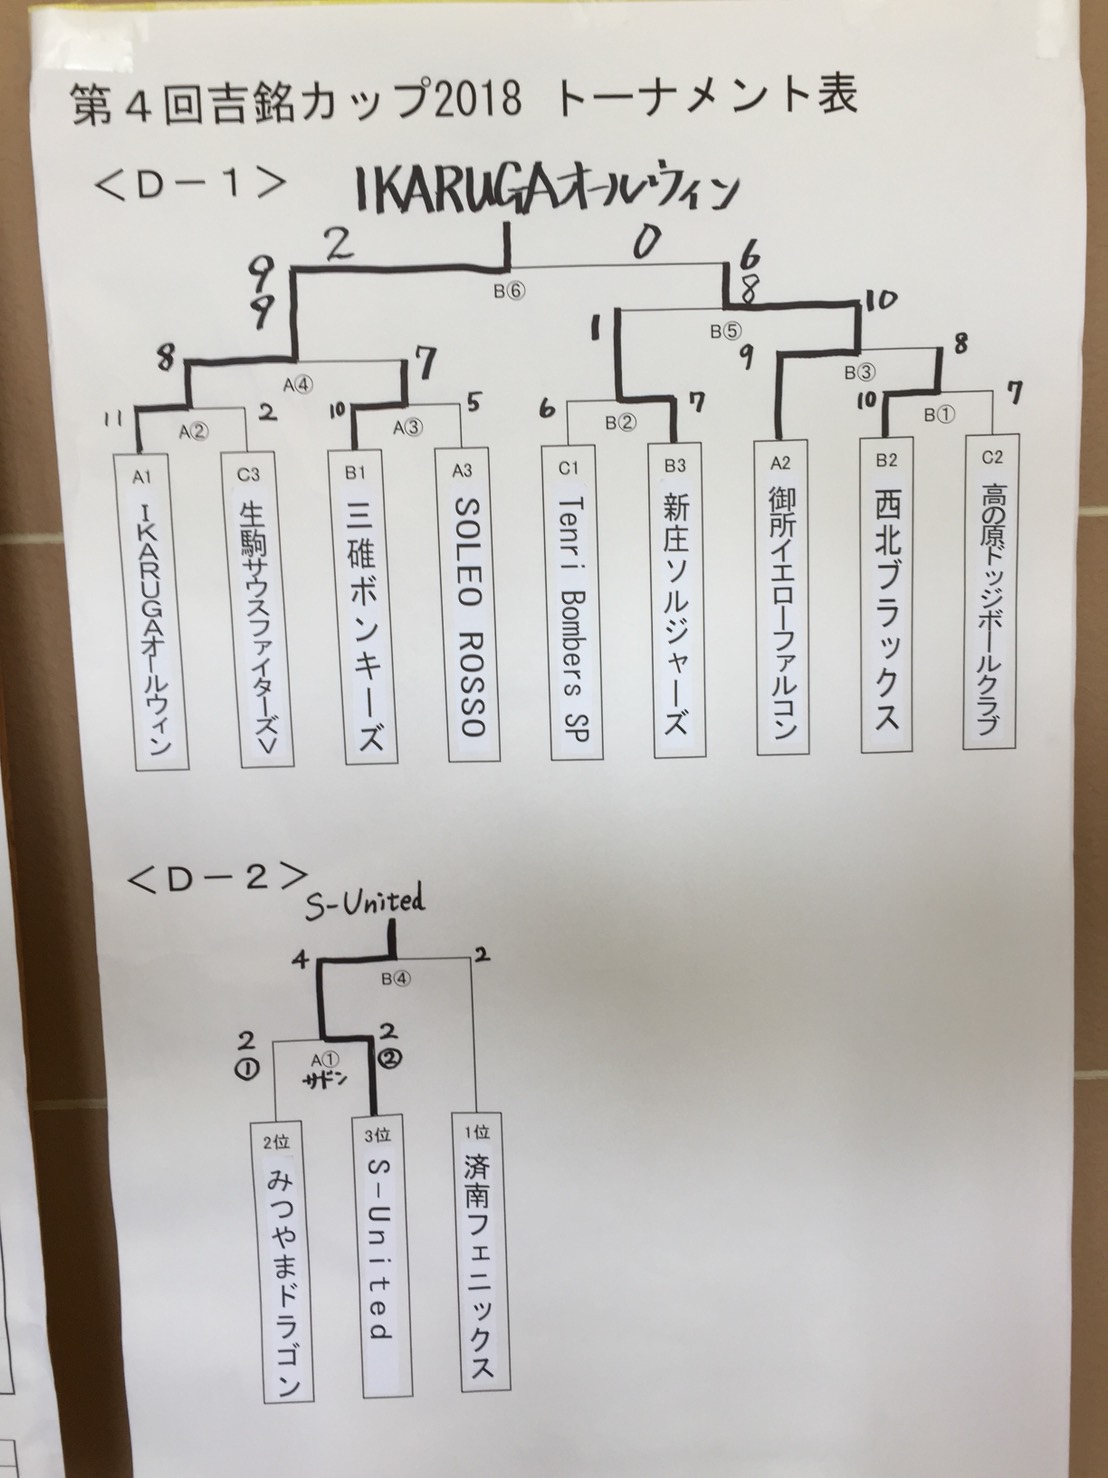 第４回吉銘カップ2018 トーナメント表
＜Ｄ－１＞
IKARUGAオールウィン
2 0
9 6
9 8
B⑥
10
1 B⑤
8 7 9 8
A④ B③
11 2 10 5 6 7 10 7
A② A③ B② B①
A1 IKARUGAオールウィン
C3 生駒サウスファイターズV
B1 三碓ボンキーズ
A3 SOLEO ROSSO
C1 Tenri Bombers SP
B3 新庄ソルジャーズ
A2 御所イエローファルコン
B2 西北ブラックス
C2 高の原ドッジボールクラブ
＜Ｄ－２＞
S-United
4 2
B④
2 2
① A① ②
サドン
2位 みつやまドラゴン
3位 S-United
1位 済南フェニックス